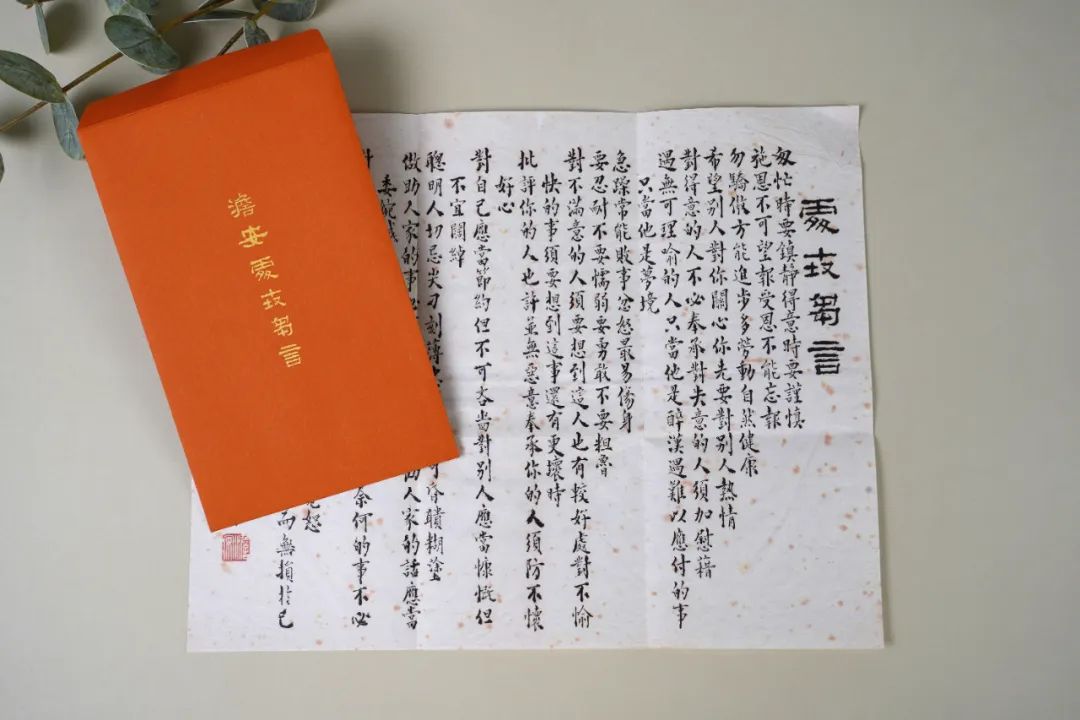 澹安處世芻言
處世芻言
匆忙時要鎮靜得意時要謹慎
施恩不可望報受恩不能忘報
勿驕傲方能進步多勞動自然健康
希望別人對你關心你先要對別人熱情
對得意的人不必奉承對失意的人須加慰藉
遇無可理喻的人只當他是醉漢遇難以應付的事
只當他是夢境
急躁常能敗事忿怒最易傷身
要忍耐不要懦弱要勇敢不要粗魯
對不滿意的人須要想到這人也有較好處對不愉
快的事須要想到這事還有更壞時
批評你的人也許並無惡意奉承你的人須防不懷
好心
對自己應當節約但不可吝嗇對別人應當慷慨但
不宜闊綽
聰明人切忌尖刁刻薄 可昏聵糊塗
做助人家的事 人家的話應當
委婉
奈何的事不必
怒
而無損於己